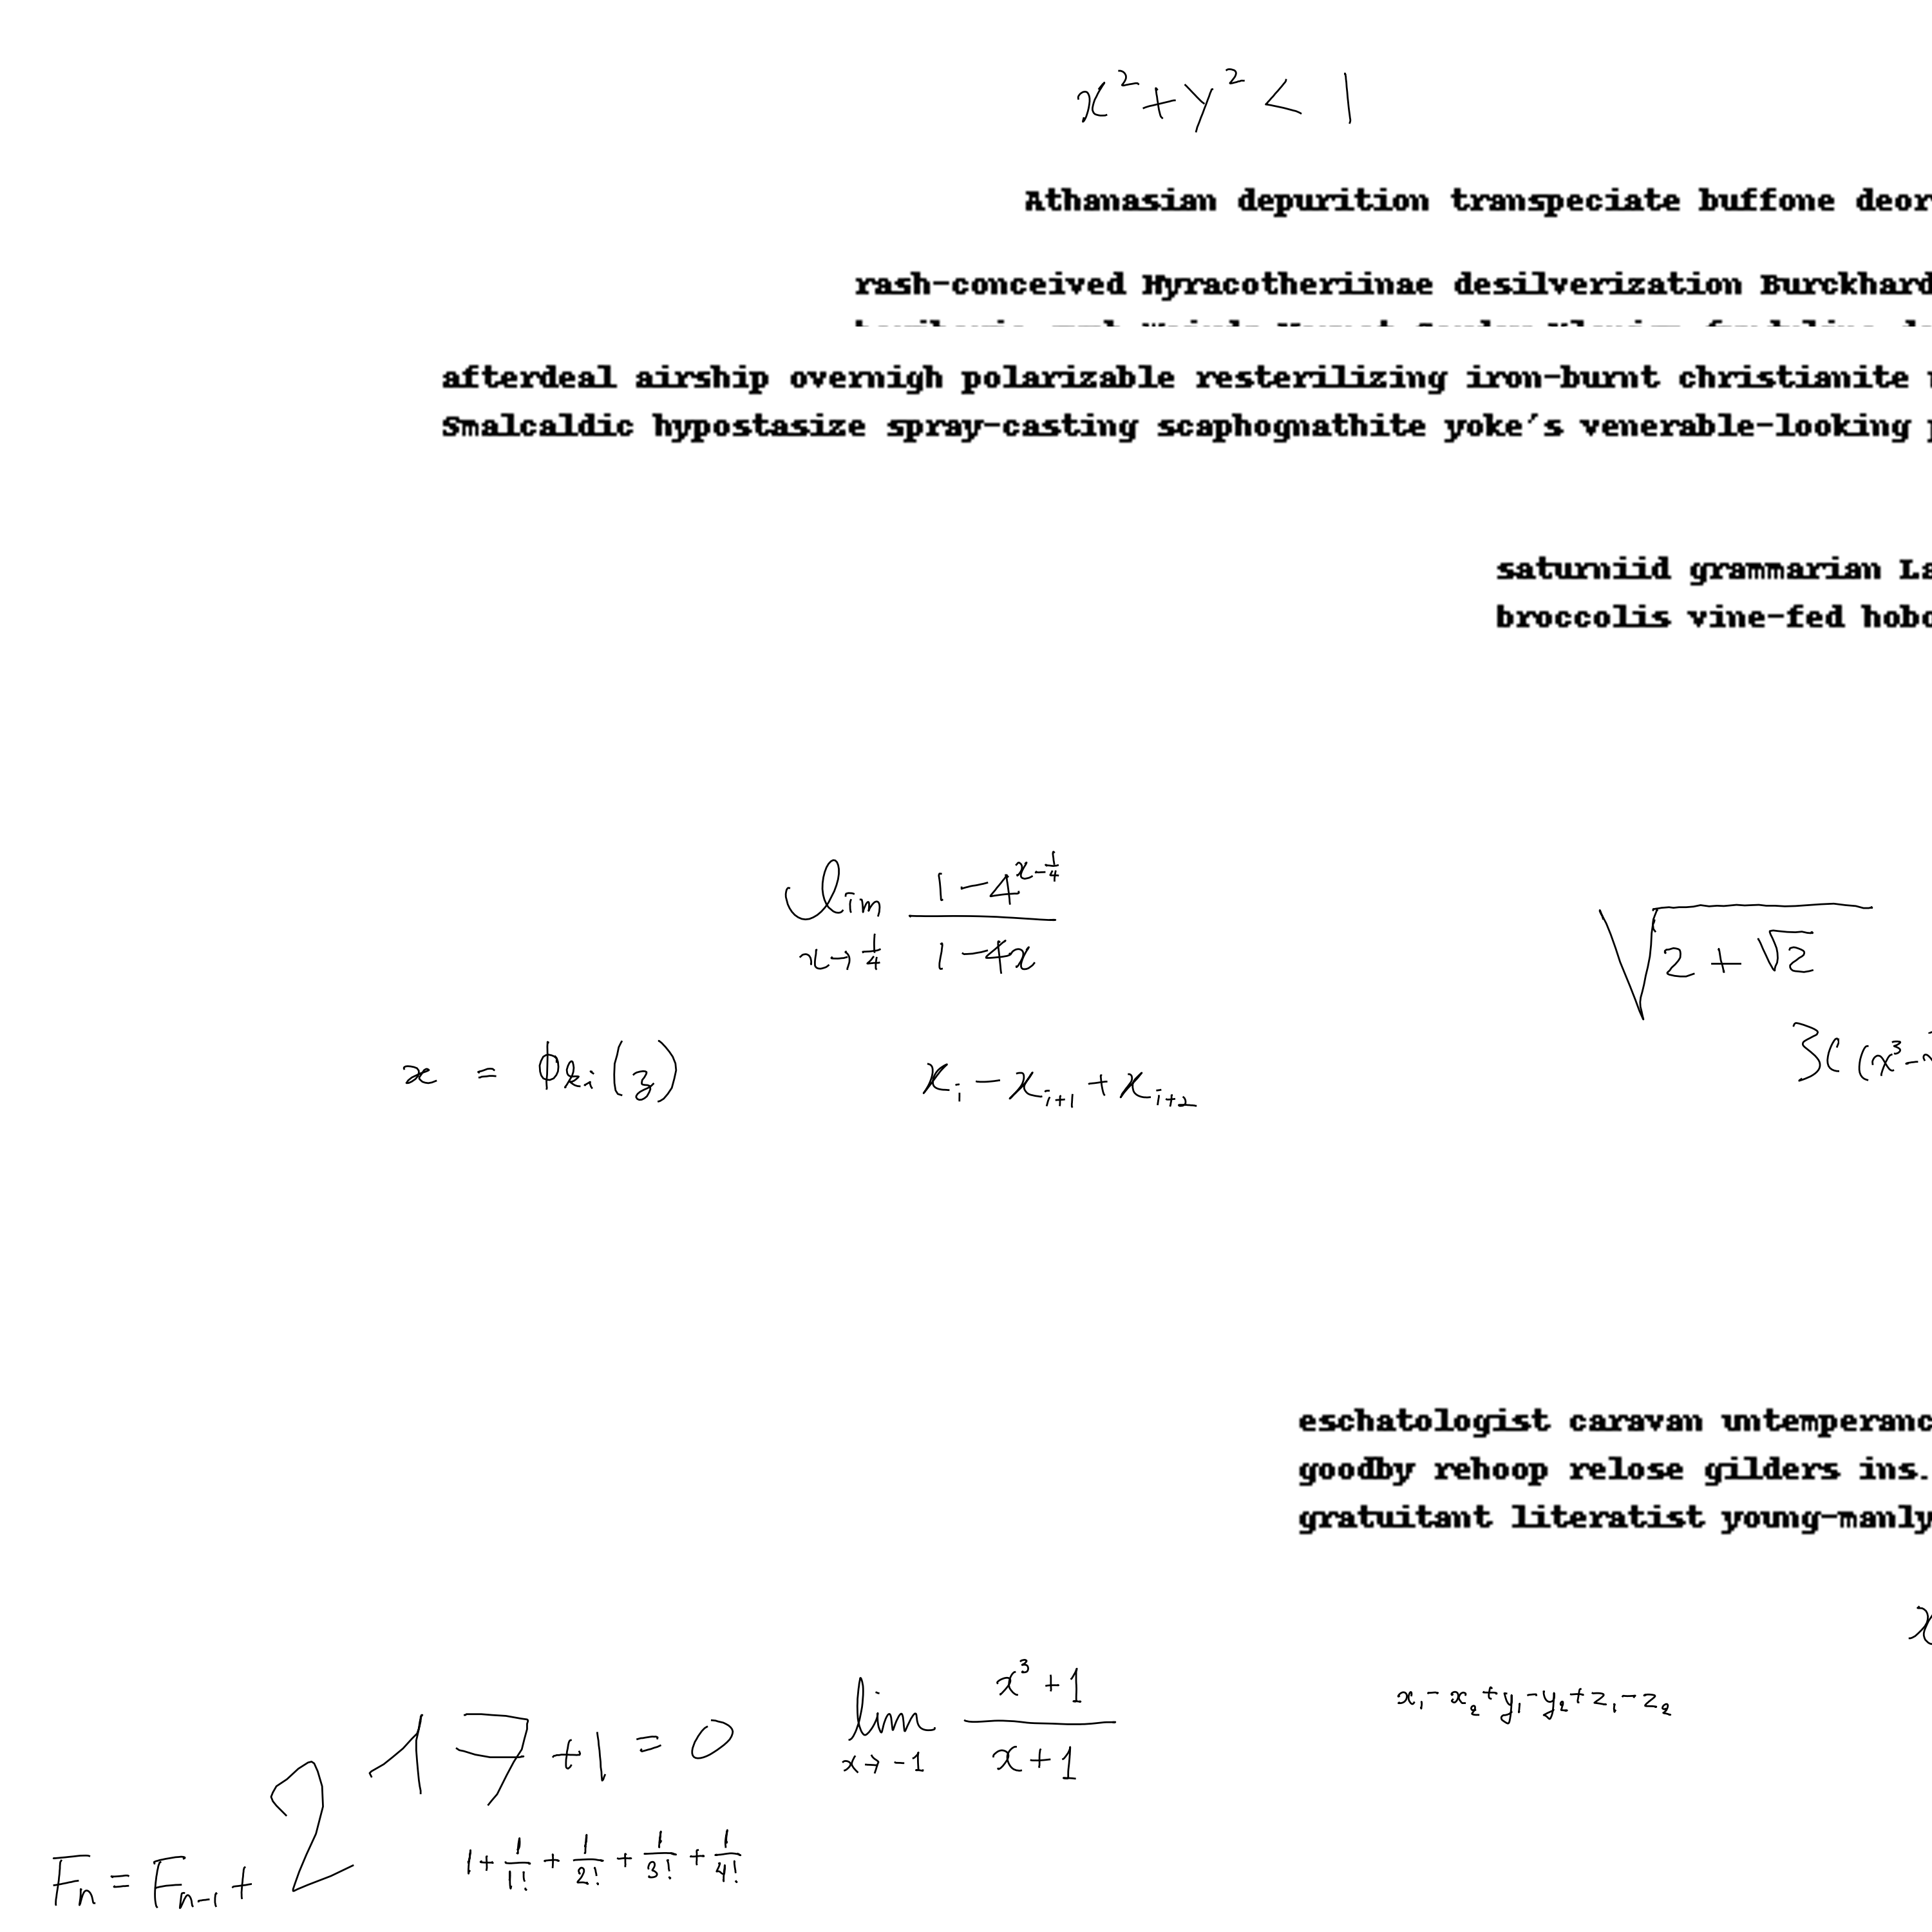 x² + y² < 1
Athanasian depurition transpeciate buffone
rash-conceived Hyracotheriinae desilverization
afterdeal airship overnigh polarizable resterilizing iron-burnt christianite
Smalcaldic hypostasize spray-casting scaphognathite yoke's venerable-looking
saturniid grammarian
broccolis vine-fed
lim_{x→1/4} (1-4^{x-1/4})/(1-4x)
√(2+√2)
x = φ_{k_i}(z)
x_i - x_{i+1} + x_{i+2}
eschatologist caravan
goodby rehoop relose gilders ins.
gratuitant literatist young-manly
lim_{x→-1} (x³+1)/(x+1)
x₁-x₂+y₁-y₂+z₁-z₂
2^{17}+1=0
1+1/1!+1/2!+1/3!+1/4!
F_n = F_{n-1} +